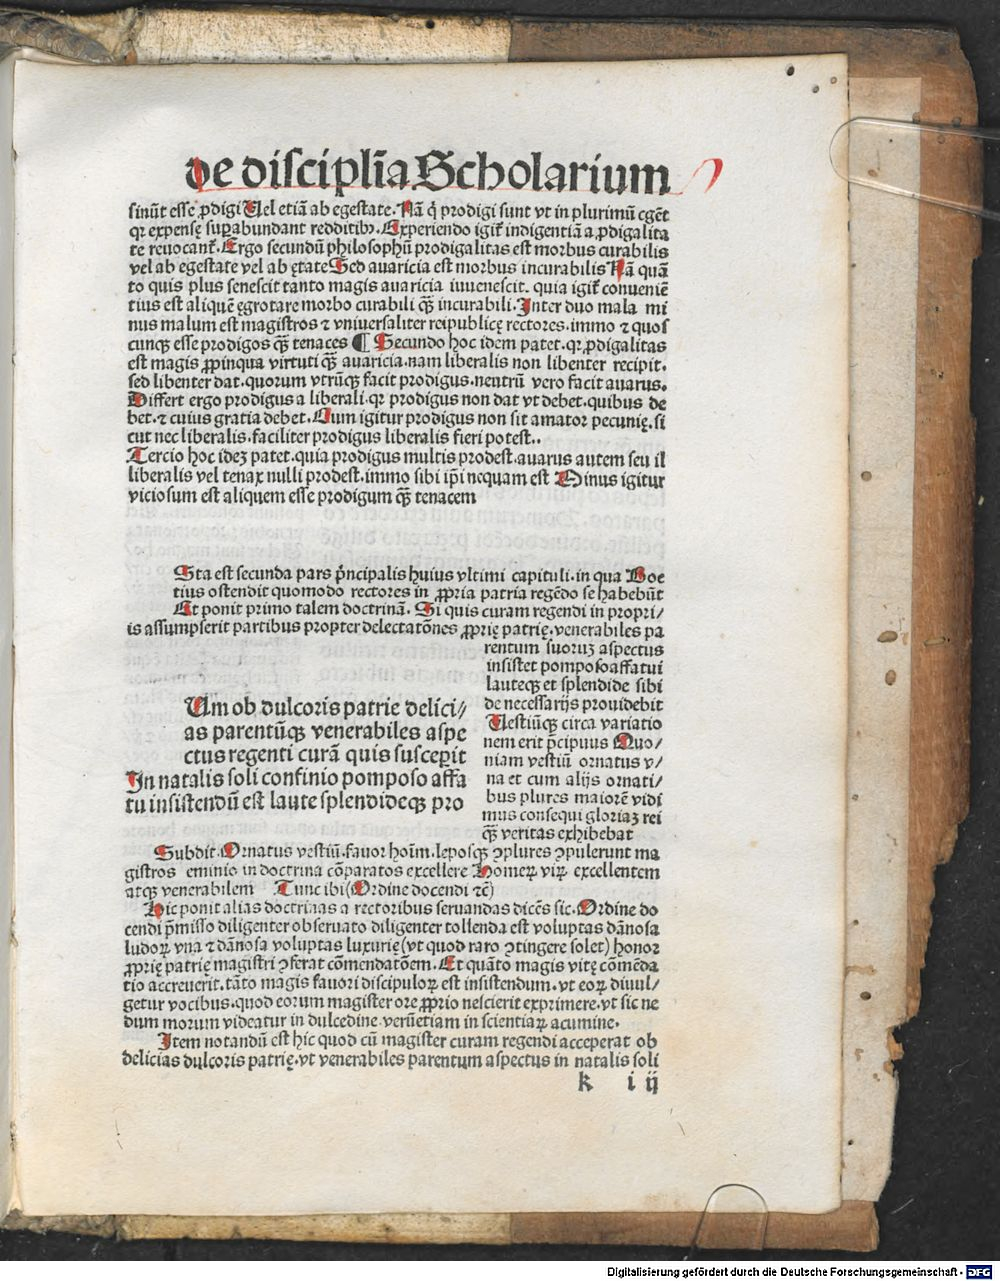 de disciplīa Scholarium
sinūt esse ꝓdigi Uel etiā ab egestate. Nā q̄ prodigi sunt vt in plurimū egēt
qꝛ expensę supꝑabundant redditibꝰ. Experiendo igit᷑ indigentiā a ꝓdigalita
te reuocant᷑. Ergo secundū philosophū prodigalitas est morbus curabilis
vel ab egestate vel ab ętate Sed auaricia est morbus incurabilis Nā quā
to quis plus senescit tanto magis auaricia iuuenescit. quia igit᷑ conueniē
tius est aliquē ęgrotare morbo curabili qꝫ̄ incurabili. Inter duo mala mi
nus malum est magistros ⁊ vniuersaliter reipublicę rectores. immo ⁊ quos
cunqꝫ esse prodigos qꝫ̄ tenaces ¶ Secundo hoc idem patet. qꝛ ꝓdigalitas
est magis ꝓpinqua virtuti qꝫ̄ auaricia. nam liberalis non libenter recipit.
sed libenter dat. quorum vtrūqꝫ facit prodigus. neutrū vero facit auarus.
Differt ergo prodigus a liberali. qꝛ prodigus non dat vt debet. quibus de
bet. ⁊ cuius gratia debet. Cum igitur prodigus non sit amator pecunię. si
cut nec liberalis. faciliter prodigus liberalis fieri potest..
Tercio hoc ideꝫ patet. quia prodigus multis prodest. auarus autem seu il
liberalis vel tenax nulli prodest. immo sibi ip̄i nequam est Minus igitur
viciosum est aliquem esse prodigum qꝫ̄ tenacem
Sta est secunda pars p̄ncipalis huius vltimi capituli. in qua Boe
tius ostendit quomodo rectores in ꝓpria patria regēdo se habebūt
Et ponit primo talem doctrinā. Si quis curam regendi in propri/
is assumpserit partibus propter delectatōnes ꝓprię patrię. venerabiles pa
rentum suoruꝫ aspectus
insistet pomposo affatui
lauteqꝫ et splendide sibi
de necessarijs prouidebit
Uestiūqꝫ circa variatio
nem erit p̄cipuus Quo/
niam vestiū ornatus v/
na et cum alijs ornati/
bus plures maiorē vidi
mus consequi gloriaꝫ rei
qꝫ̄ veritas exhibebat
Um ob dulcoris patrie delici/
as parentūqꝫ venerabiles aspe
ctus regenti curā quis susceꝑit
In natalis soli confinio pomposo affa
tu insistendū est laute splendideqꝫ pro
Subdit. Ornatus vestiū. fauor hoīm. leposqꝫ ꝯplures ꝯpulerunt ma
gistros eminio in doctrina cōparatos excellere Homeꝝ viꝝ excellentem
atqꝫ venerabilem Tunc ibi (Ordine docendi ⁊c̄)
Hic ponit alias doctrinas a rectoribus seruandas dicēs sic. Ordine do
cendi p̄misso diligenter obseruato diligenter tollenda est voluptas dānosa
ludoꝝ vna ⁊ dānosa voluptas luxurię (vt quod raro ꝯtingere solet) honor
ꝓprię patrię magistri ꝯferat cōmendatōem. Et quāto magis vitę cōmēda
tio accreuerit. tāto magis fauori discipuloꝝ est insistendum. vt eoꝝ diuul/
getur vocibus. quod eorum magister ore ꝓprio nescierit exprimere. vt sic ne
dum morum videatur in dulcedine. verūetiam in scientiaꝝ acumine.
Item notandū est hic quod cū magister curam regendi acceperat ob
delicias dulcoris patrię. vt venerabiles parentum aspectus in natalis soli
k iij
Digitalisierung gefördert durch die Deutsche Forschungsgemeinschaft - DFG